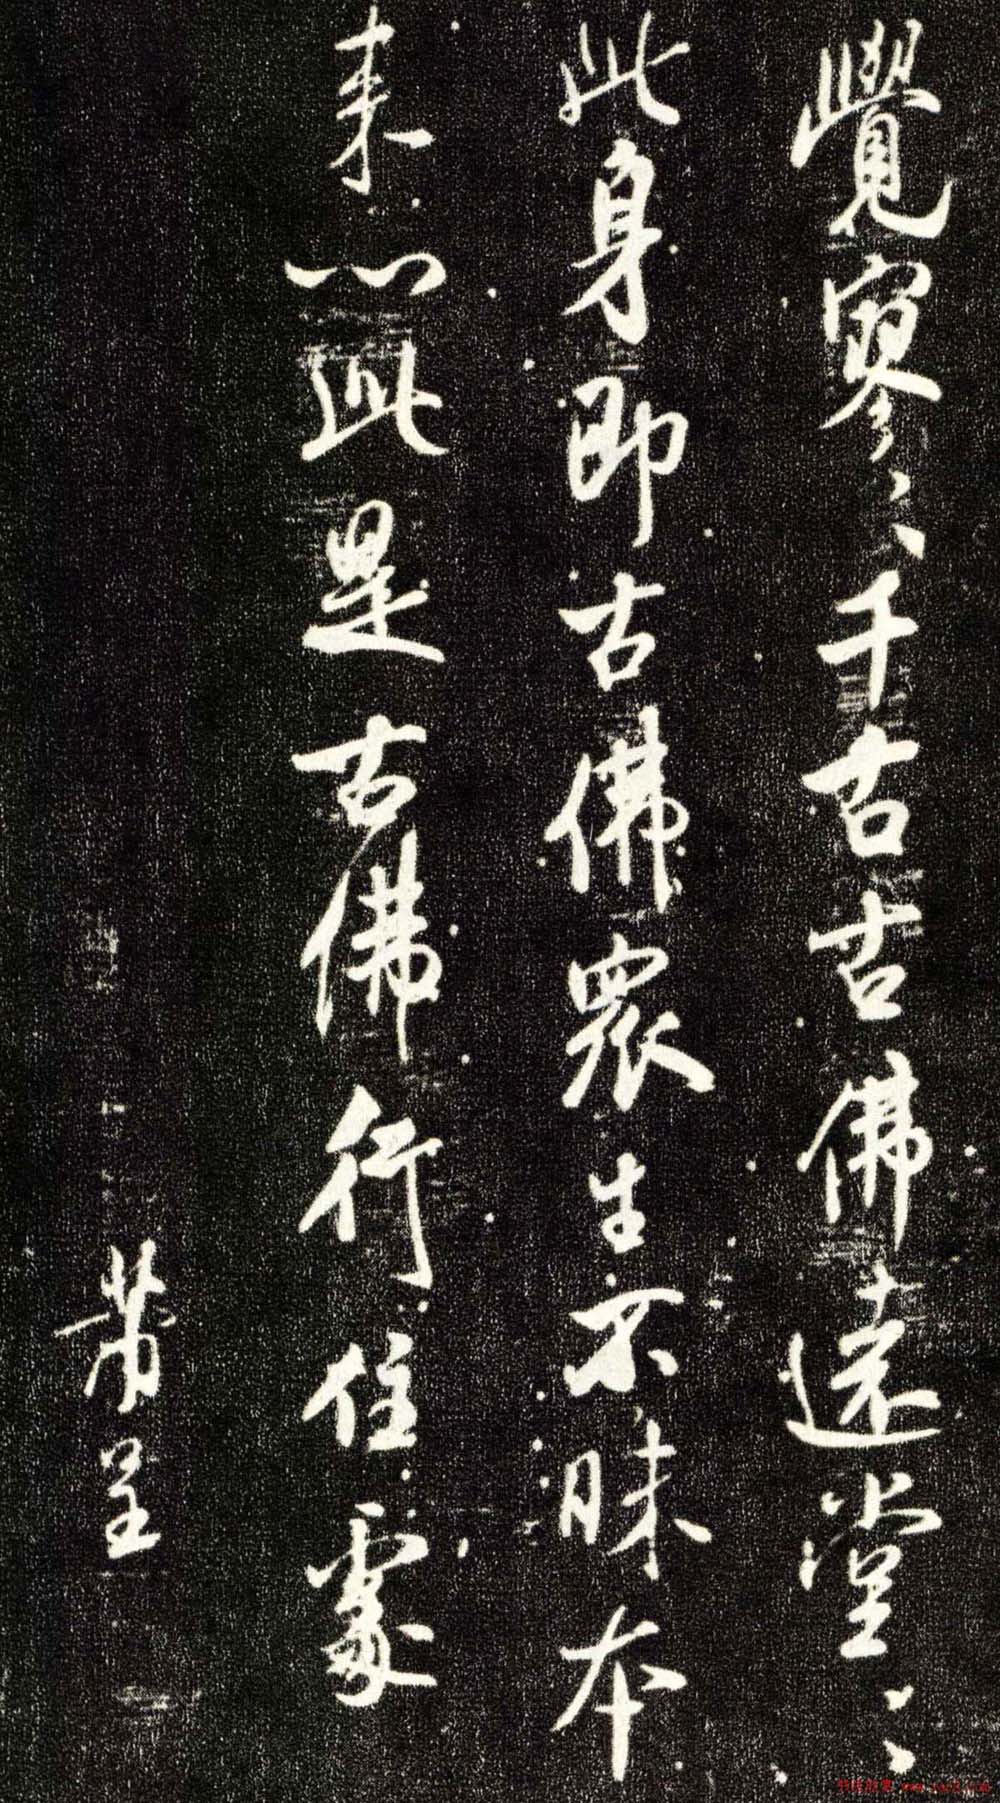 覺寥〻千古古佛遠堂〻
此身即古佛衆生不昧本
来心此是古佛行住處
芾呈